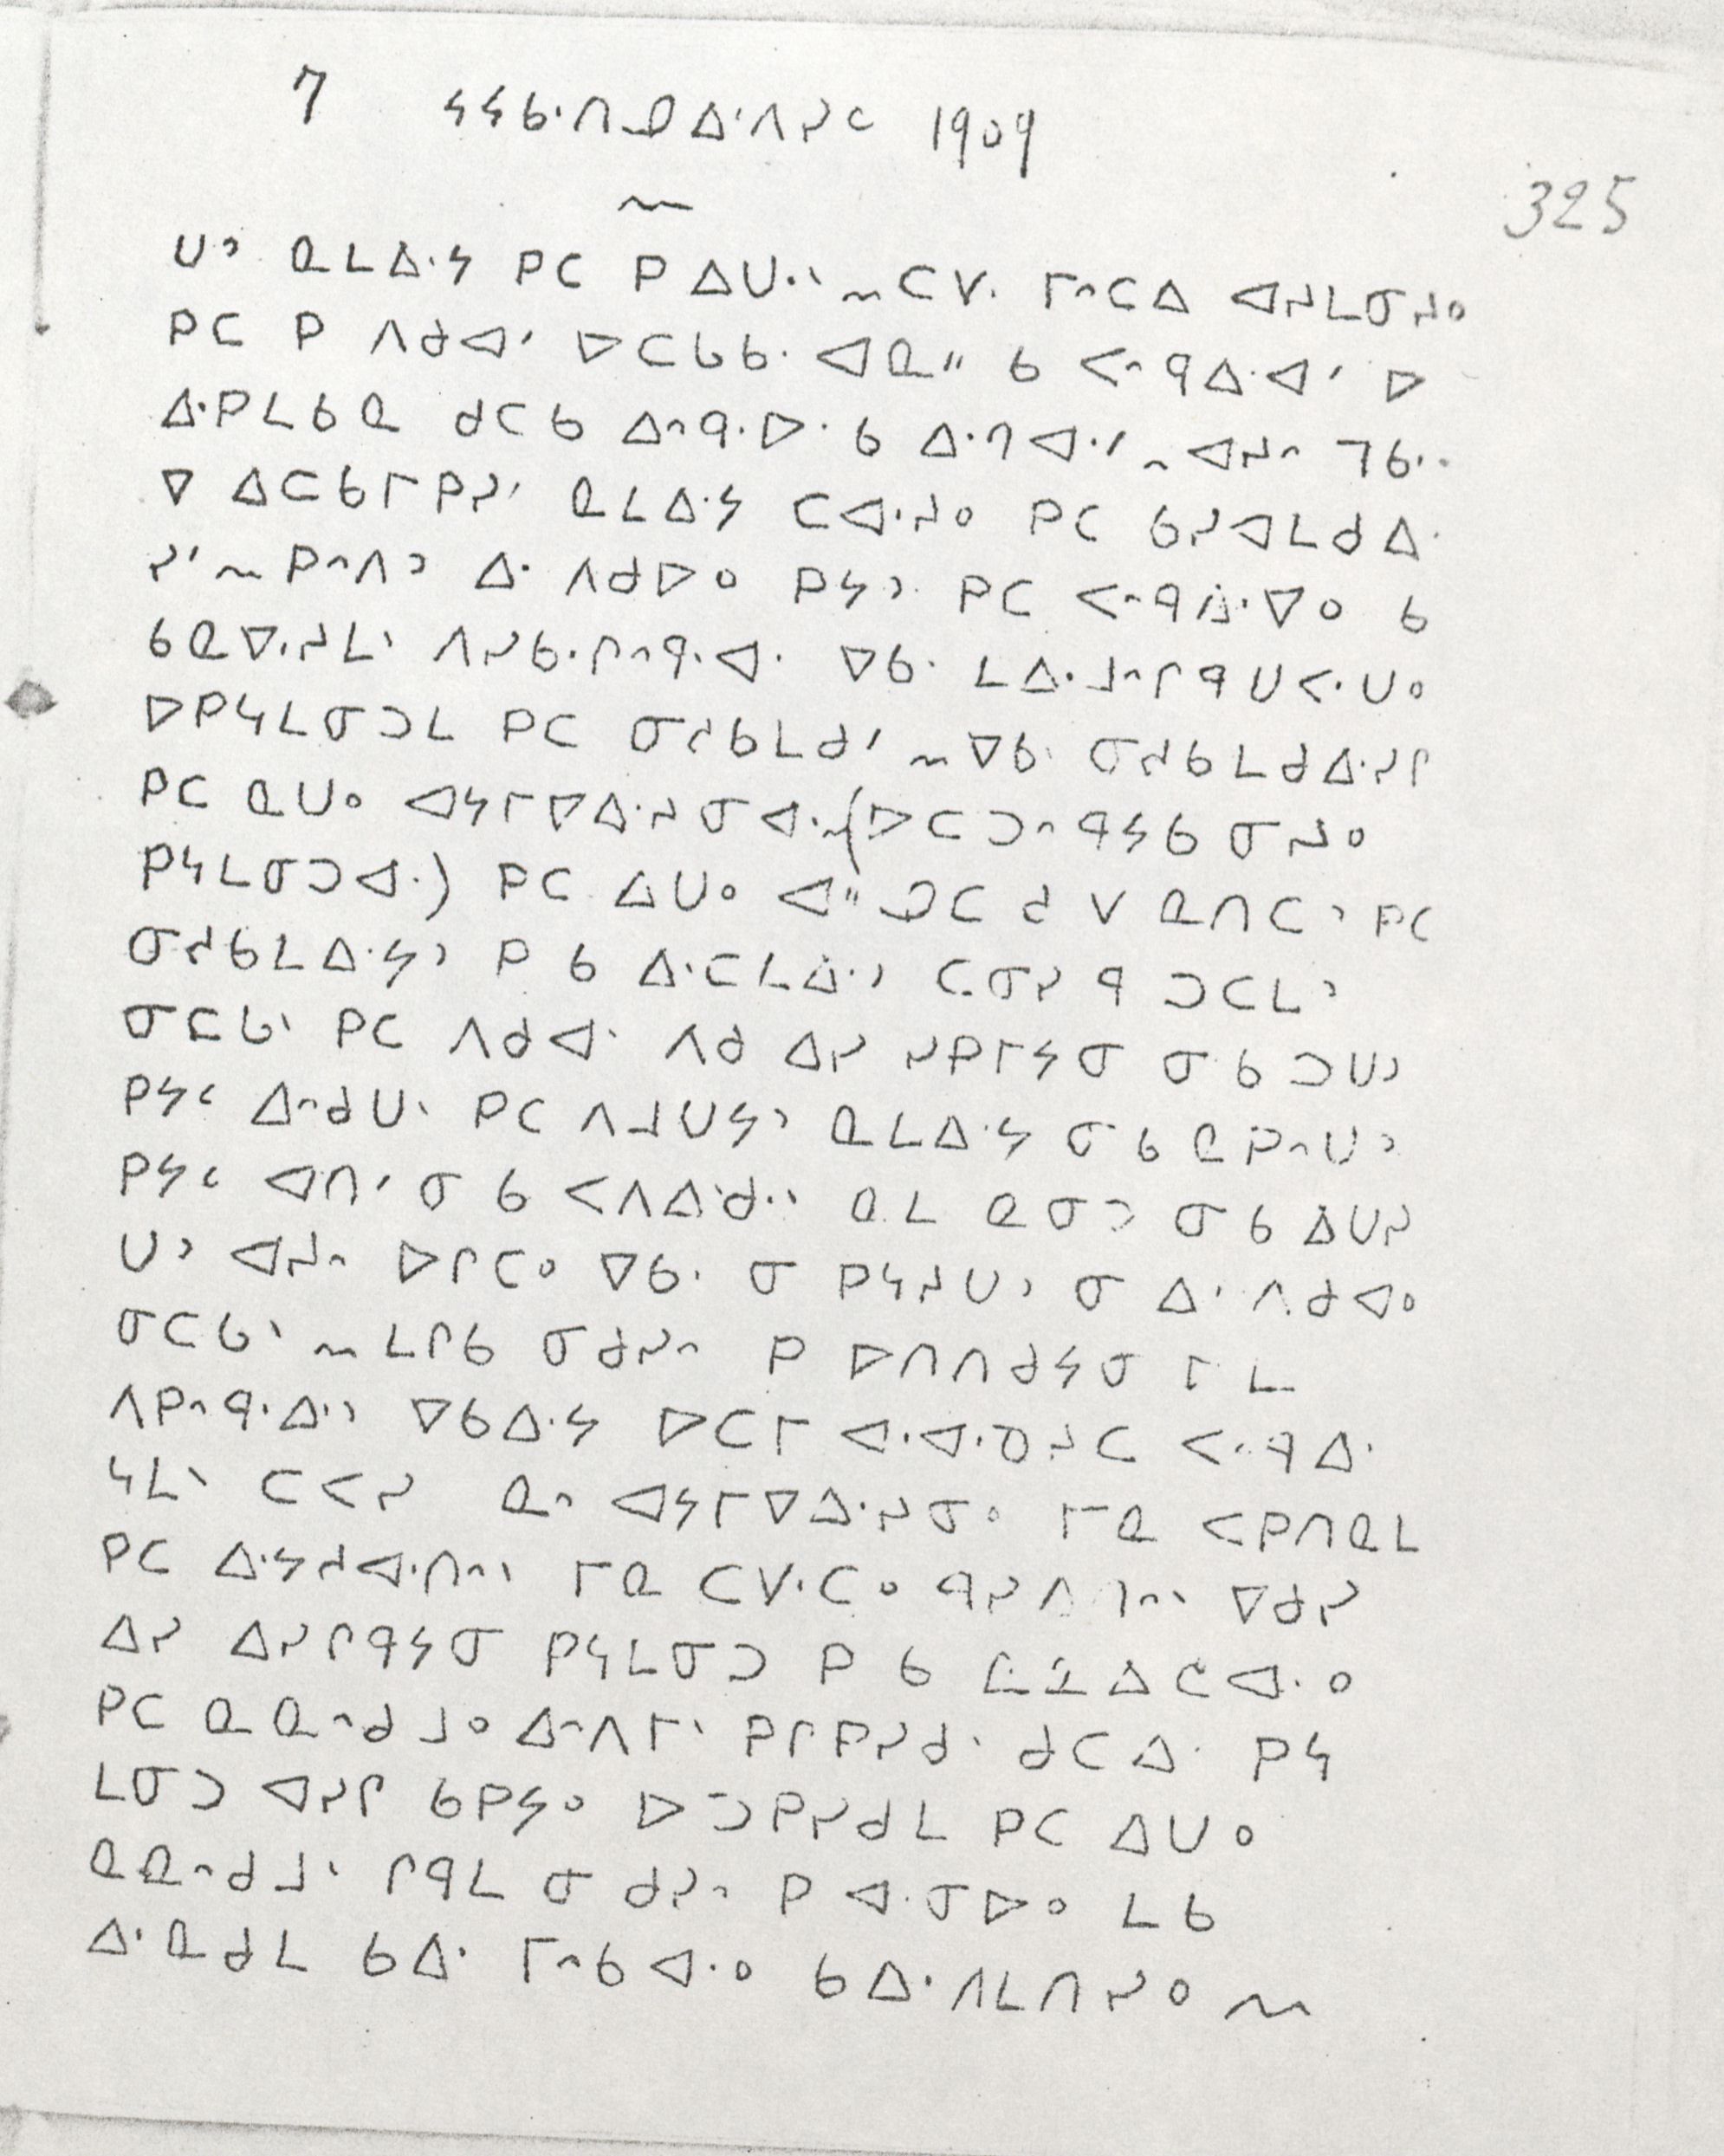 7 ᔭᔭᑲᐧᑎᓄ ᐃᐧᐱᓯᑦ 1909
325
ᑌᐣ ᓇᒪᐃᐧᔭ ᑭᑕ ᑭ ᐃᑌᐧᐠ ᑕᐯᐧ ᒥᐢᑕᐃ ᐊᔨᒪᓂᔪᐤ
ᑭᑕ ᑭ ᐱᑯᐊᐟ ᐅᑕᓴᑲᐧ ᐊᓇᐦ ᑲ ᐸᐢᑫᐃᐧᐊᐟ ᐅ
ᐃᐧᑭᒪᑲᓇ ᑯᑕᑲ ᐃᐢᑫᐧᐅᐧ ᑲ ᐃᐧᒋᐊᐧᐟ ᐊᔨᐢ ᒣᑲᐧᐨ
ᐁ ᐃᑕᑲᒥᑭᓯᐟ ᓇᒪᐃᐧᔭ ᑕᐊᐧᔪᐤ ᑭᑕ ᑲᓯᐊᒪᑯᐃᐧ
ᓯᐟ ᑭᐢᐱᐣ ᐃᐧ ᐱᑯᐅᐤ ᑭᔭᐣ ᑭᑕ ᐸᐢᑫᐃᐧᐁᐤ ᑲ
ᑲᓇᐁᐧᔨᒪᐠ ᐱᓯᑲᐧᒋᐢᑫᐧᐊᐧ ᐁᑲᐧ ᒪᐃᐧᒧᐢᒋᑫᑌᐸᐧᑌᐤ
ᐅᑭᓴᒪᓂᑐᒪ ᑭᑕ ᓂᓱᑲᒪᑯᐟ ᐁᑲᐧ ᓂᓱᑲᒪᑯᐃᐧᓯᒋ
ᑭᑕ ᓇᑌᐤ ᐊᔭᒥᐁᐃᐧᔨᓂᐊᐧ (ᐅᑕᑐᐢᑫᔭᑲᓂᔨᐤ
ᑭᓴᒪᓂᑐᐊᐧ) ᑭᑕ ᐃᑌᐤ ᐊᐦ ᓄᑕᑯ ᐯ ᓇᑎᑕᐣ ᑭᑕ
ᓂᓱᑲᒪᐃᐧᔭᐣ ᑭ ᑲ ᐃᐧᑕᒪᐃᐧᐣ ᑕᓂᓯ ᑫ ᑐᑕᒪᐣ
ᓂᑕᓴᐠ ᑭᑕ ᐱᑯᐊᐧ ᐱᑯ ᐃᓯ ᓯᑭᒥᔭᓂ ᓂ ᑲ ᑐᑌᐣ
ᑭᔭᑦ ᐃᐢᑯᑌᐠ ᑭᑕ ᐱᒧᑌᔭᐣ ᓇᒪᐃᐧᔭ ᓂ ᑲ ᓇᑭᐢᑌᐣ
ᑭᔭᑦ ᐊᑎᐟ ᓂ ᑲ ᐸᐱᐃᐧᑯᐧᐠ ᓇᒪ ᓇᓂᑐ ᓂ ᑲ ᐃᑌᓯ
ᑌᐣ ᐊᔨᐢ ᐅᒋᑕᐤ ᐁᑲᐧ ᓂ ᑭᓴᔨᑌᐣ ᓂ ᐃᐧ ᐱᑯᐊᐤ
ᓂᑕᓴᐠ ᒪᒋᑲ ᓂᑯᓯᐢ ᑭ ᐅᑎᑎᑯᔭᓂ ᒥ ᒪ
ᐱᑭᐢᑫᐧᐃᐧᐣ ᐁᑲᐃᐧᔭ ᐅᑕᒥ ᐊᐧᐊᐧᓀᔨᑕ ᐸᐢᑫᐃᐧ
ᓴᒪᐠ ᑕᐸᓯ ᓇᐢ ᐊᔭᒥᐁᐃᐧᔨᓂᐤ ᒥᓇ ᐸᑭᑎᓇᒪ
ᑭᑕ ᐃᐧᔭᓱᐊᐧᑎᐢᐠ ᒥᓇ ᑕᐯᐧᑕᐤ ᑫᓯ ᐁᑯᓯ
ᐃᓯ ᐃᓯᒋᑫᔭᓂ ᑭᓴᒪᓂᑐ ᑭ ᑲ ᐃᑕᐊᐧᐤ
ᑭᑕ ᓇᓇᐢᑯᒧᐤ ᐃᐢᐱᒥᐠ ᑭᒋᑭᓯᑯᐧ ᑯᑕᐃᐧ ᑭᓴ
ᒪᓂᑐ ᐊᓯᒋ ᑲᑭᔭᐤ ᐅᑐᑭᓯᑯᒪ ᑭᑕ ᐃᑌᐤ
ᓇᓇᐢᑯᒧᐠ ᒋᑫᒪ ᓂ ᑯᓯᐢ ᑭ ᐊᐧᓂᐅᐤ ᒪᑲ
ᐃᐧᓇᑯᒪ ᑲᐃᐧ ᒥᐢᑲᐊᐧᐤ ᑲᐃᐧ ᐱᒪᑎᓯᐤ